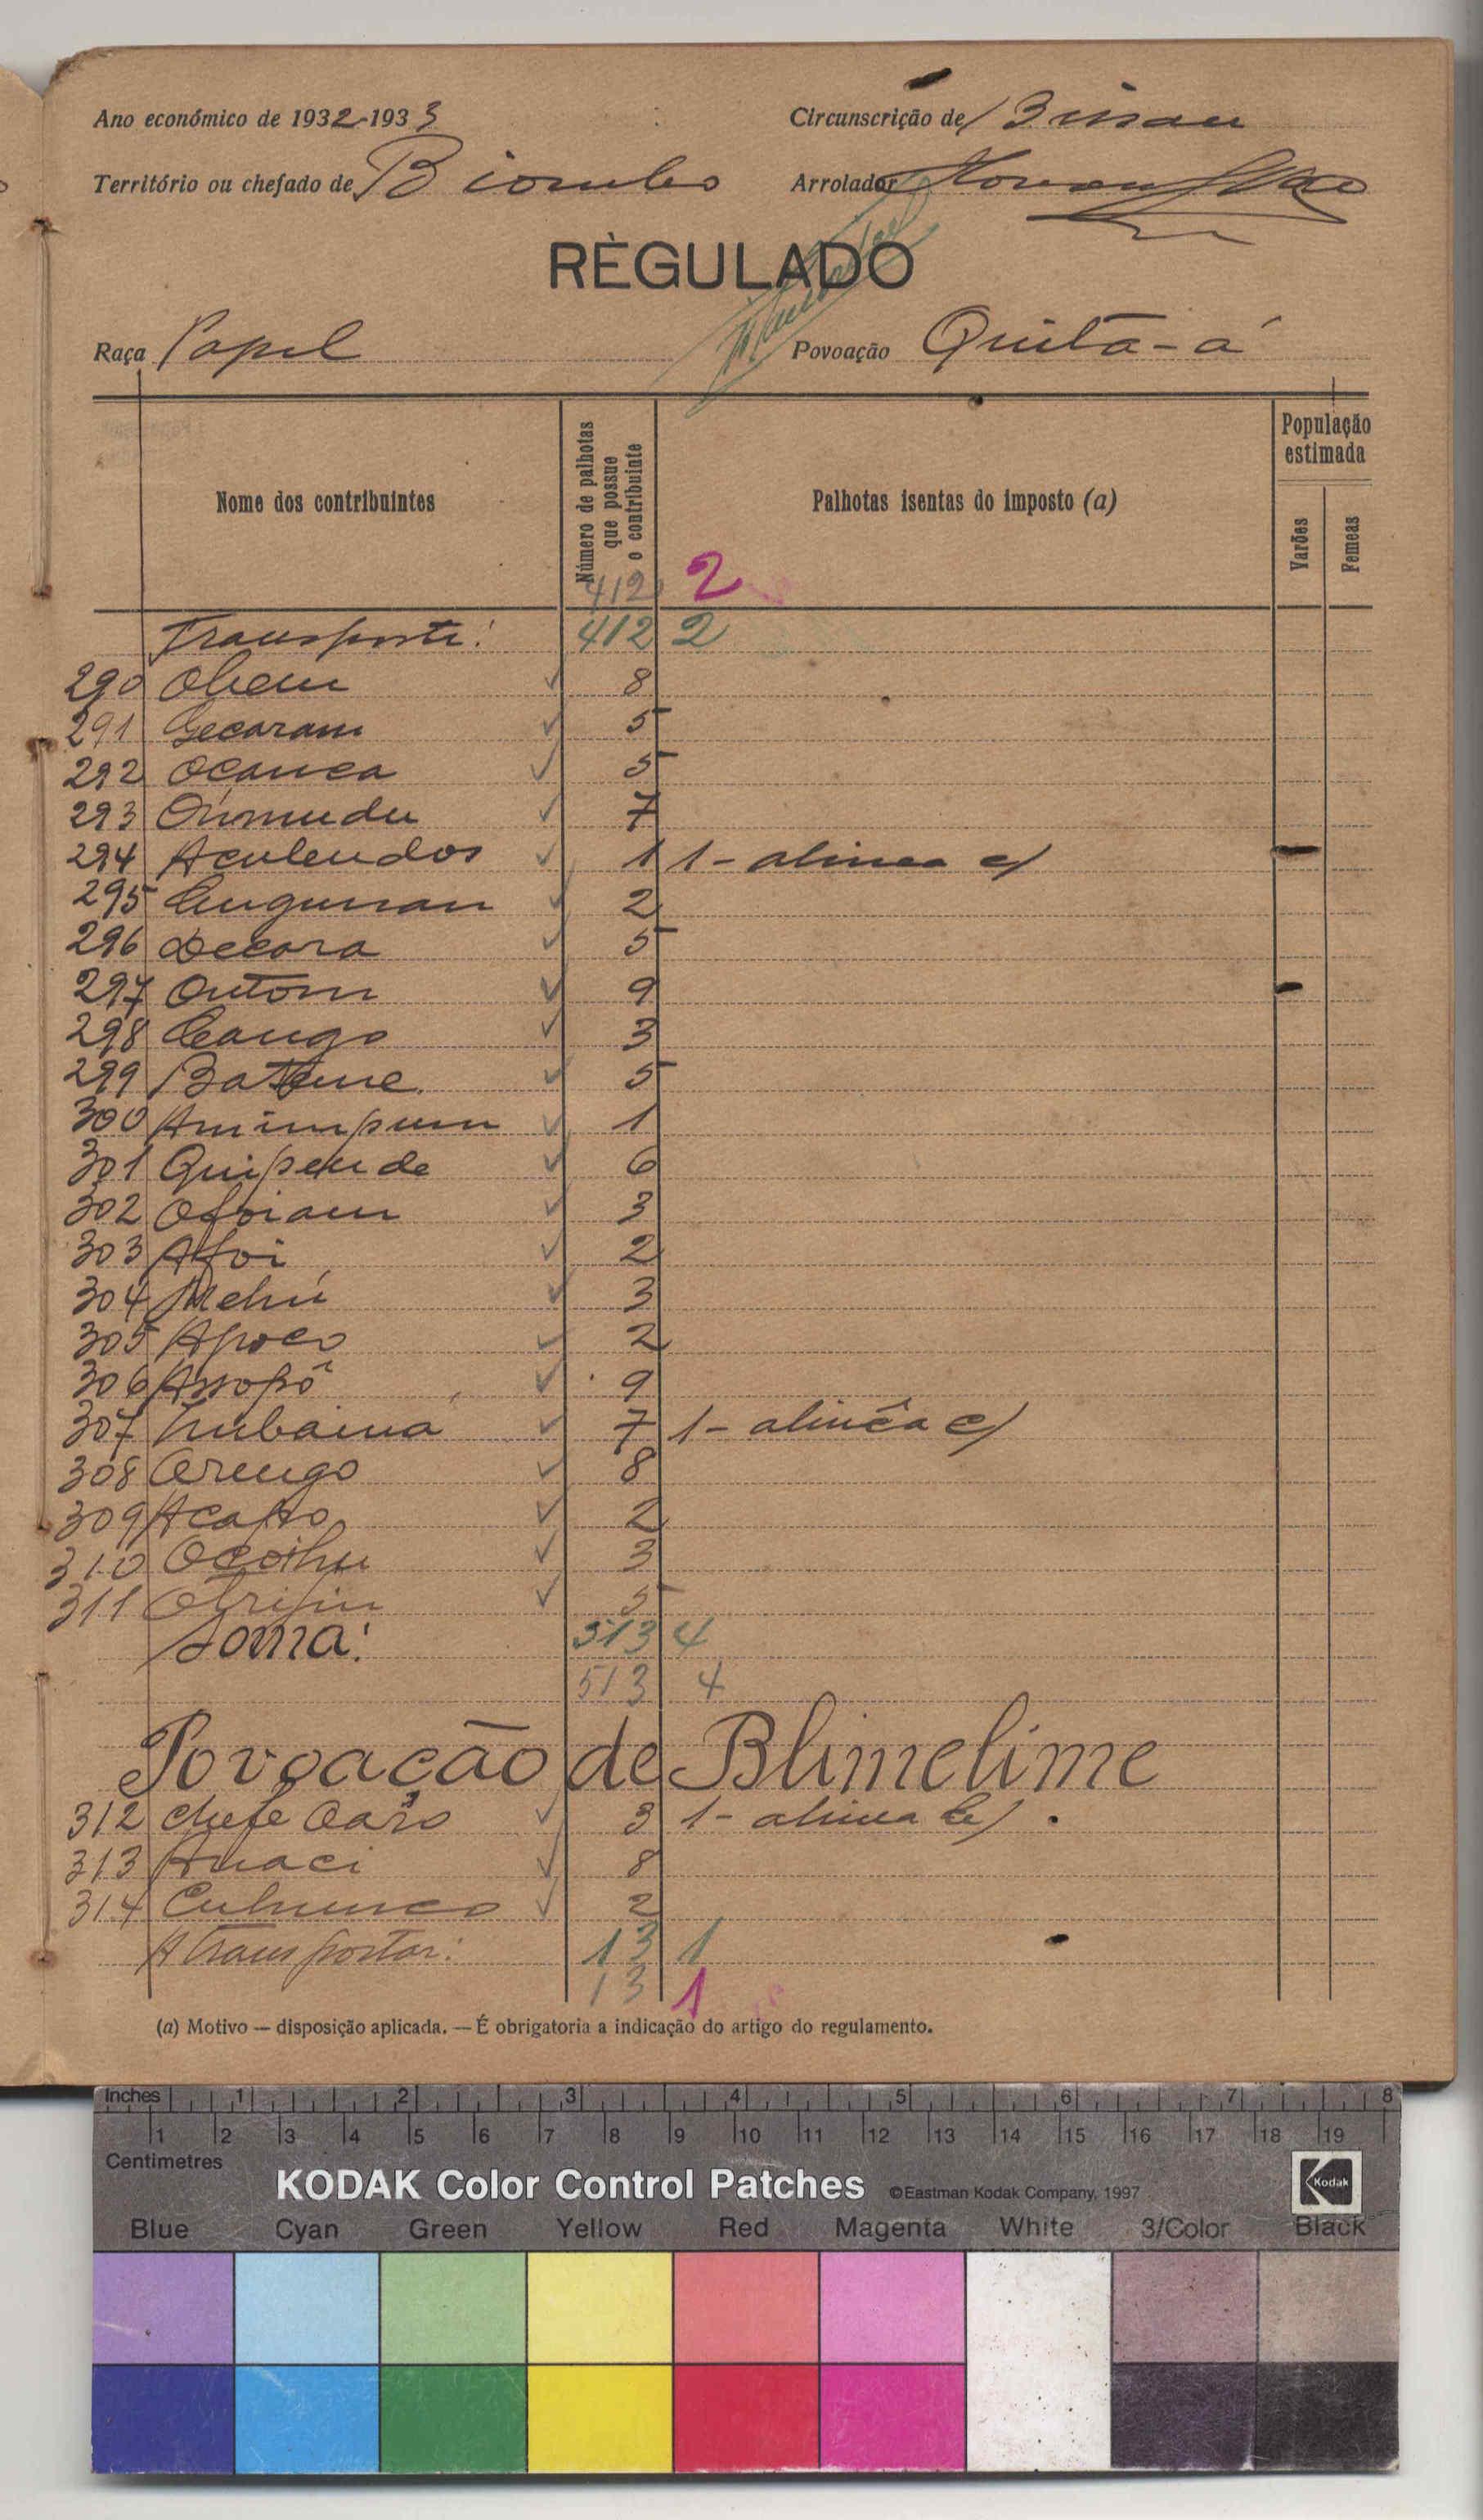 Ano económico de 1932-1933
Circunscrição de Bissau
Território ou chefado de Biombo
Arrolador
RÈGULADO
Raça Papel
Povoação Quitá-á
Nome dos contribuintes
Número de palhotas que possue o contribuinte
Palhotas isentas do imposto (a)
População estimada
Varões
Femeas
412 2
Transporte: 412 2
290 8
291 Gecaram 5
292 Ocanca 5
293 7
294 Aculendos 1 1- alinea c)
295 2
296 Decora 5
297 Ontom 9
298 Cango 3
299 5
300 Amimpum 1
301 Quipende 6
302 Ofoiam 3
303 Afoi 2
304 Mehú 3
305 Apoco 2
306 Assopô 9
307 7 1- alinêa c)
308 Orengo 8
309 2
310 3
311 5
Soma: 513 4
513 4
Povoação de Blimelime
312 Chefe 3 1- alinea b)
313 Anaci 8
314 2
A transportar: 13 1
13 1
(a) Motivo — disposição aplicada. — É obrigatoria a indicação do artigo do regulamento.
Inches 1 2 3 4 5 6 7 8
1 2 3 4 5 6 7 8 9 10 11 12 13 14 15 16 17 18 19
Centimetres
KODAK Color Control Patches ©Eastman Kodak Company, 1997 Kodak
Blue Cyan Green Yellow Red Magenta White 3/Color Black